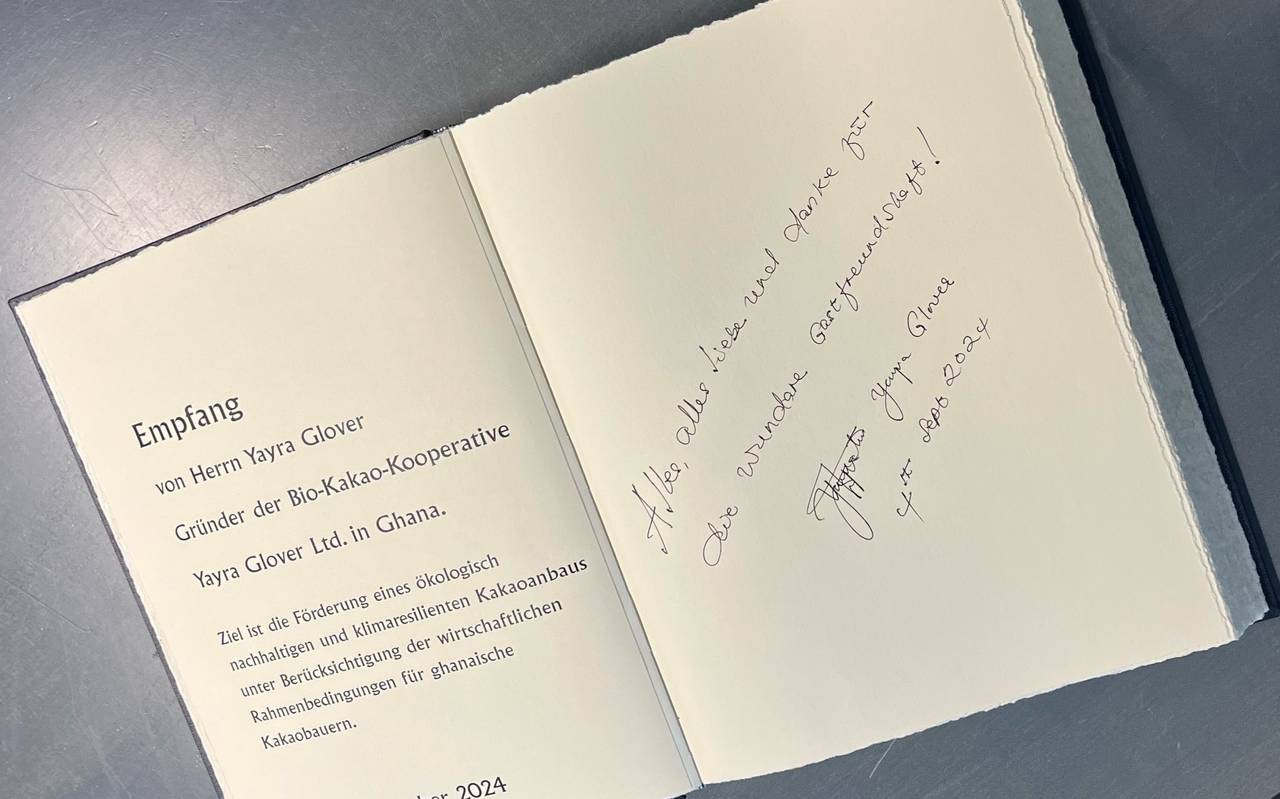 Empfang
von Herrn Yayra Glover
Gründer der Bio-Kakao-Kooperative
Yayra Glover Ltd. in Ghana.
Ziel ist die Förderung eines ökologisch
nachhaltigen und klimaresilienten Kakaoanbaus
unter Berücksichtigung der wirtschaftlichen
Rahmenbedingungen für ghanaische
Kakaobauern.
2024
Alles, alles Liebe und danke für
die wundare Gastfreundshaft!
Yayra Glover
Sept 2024